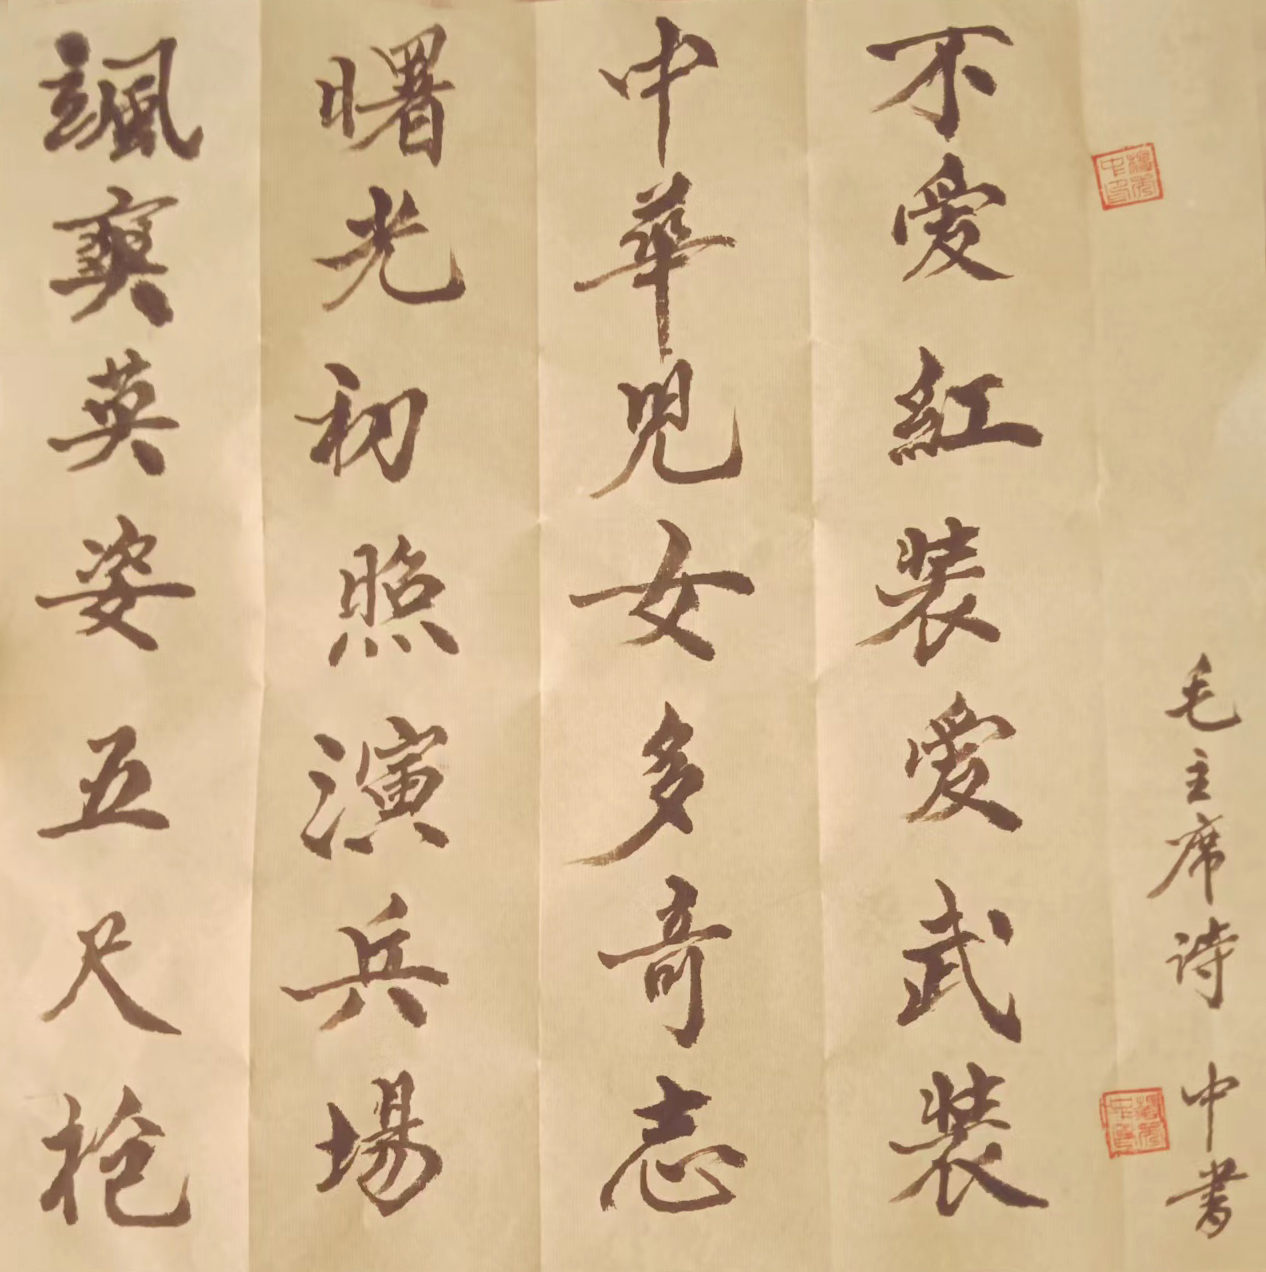 颯爽英姿五尺枪
曙光初照演兵場
中華児女多奇志
不愛紅装愛武装
毛主席诗 中書